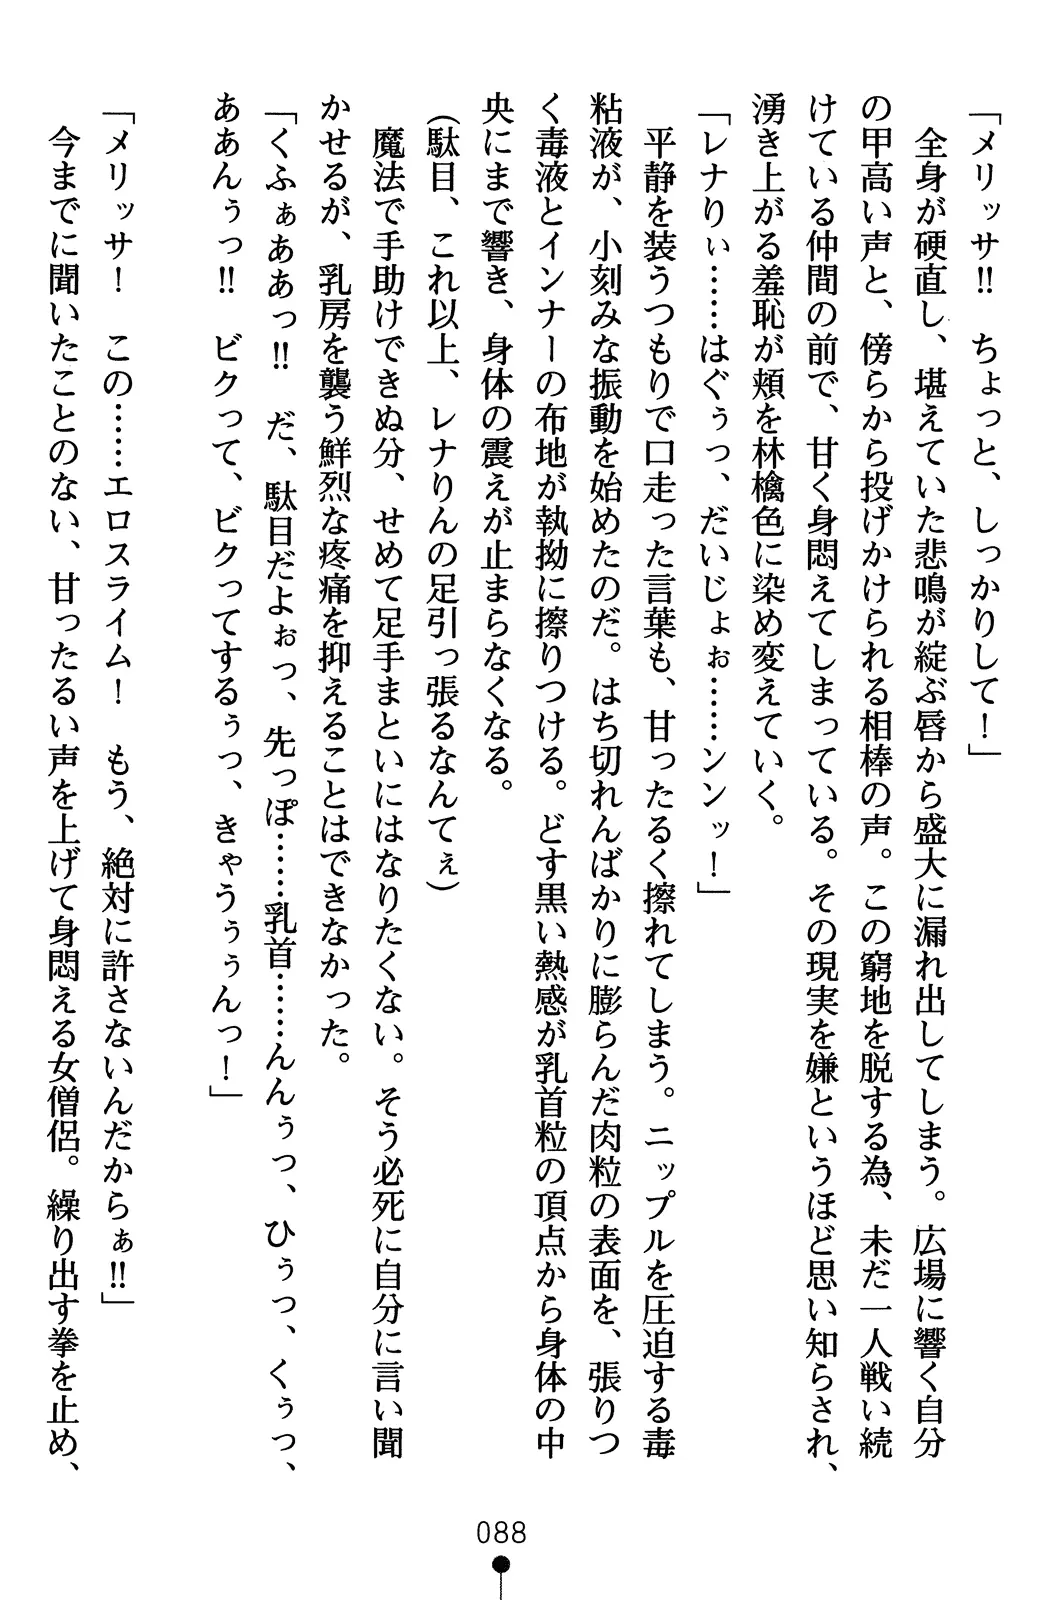 「メリッサ‼　ちょっと、しっかりして！」
　全身が硬直し、堪えていた悲鳴が綻ぶ唇から盛大に漏れ出してしまう。広場に響く自分
の甲高い声と、傍らから投げかけられる相棒の声。この窮地を脱する為、未だ一人戦い続
けている仲間の前で、甘く身悶えてしまっている。その現実を嫌というほど思い知らされ、
湧き上がる羞恥が頬を林檎色に染め変えていく。
「レナりぃ……はぐぅっ、だいじょぉ……ンンッ！」
　平静を装うつもりで口走った言葉も、甘ったるく擦れてしまう。ニップルを圧迫する毒
粘液が、小刻みな振動を始めたのだ。はち切れんばかりに膨らんだ肉粒の表面を、張りつ
く毒液とインナーの布地が執拗に擦りつける。どす黒い熱感が乳首粒の頂点から身体の中
央にまで響き、身体の震えが止まらなくなる。
（駄目、これ以上、レナりんの足引っ張るなんてぇ）
　魔法で手助けできぬ分、せめて足手まといにはなりたくない。そう必死に自分に言い聞
かせるが、乳房を襲う鮮烈な疼痛を抑えることはできなかった。
「くふぁああっ‼　だ、駄目だよぉっ、先っぽ……乳首……んんぅっ、ひぅっ、くぅっ、
ああんぅっ‼　ビクって、ビクってするぅっ、きゃうぅぅんっ！」
「メリッサ！　この……エロスライム！　もう、絶対に許さないんだからぁ‼」
　今までに聞いたことのない、甘ったるい声を上げて身悶える女僧侶。繰り出す拳を止め、
088